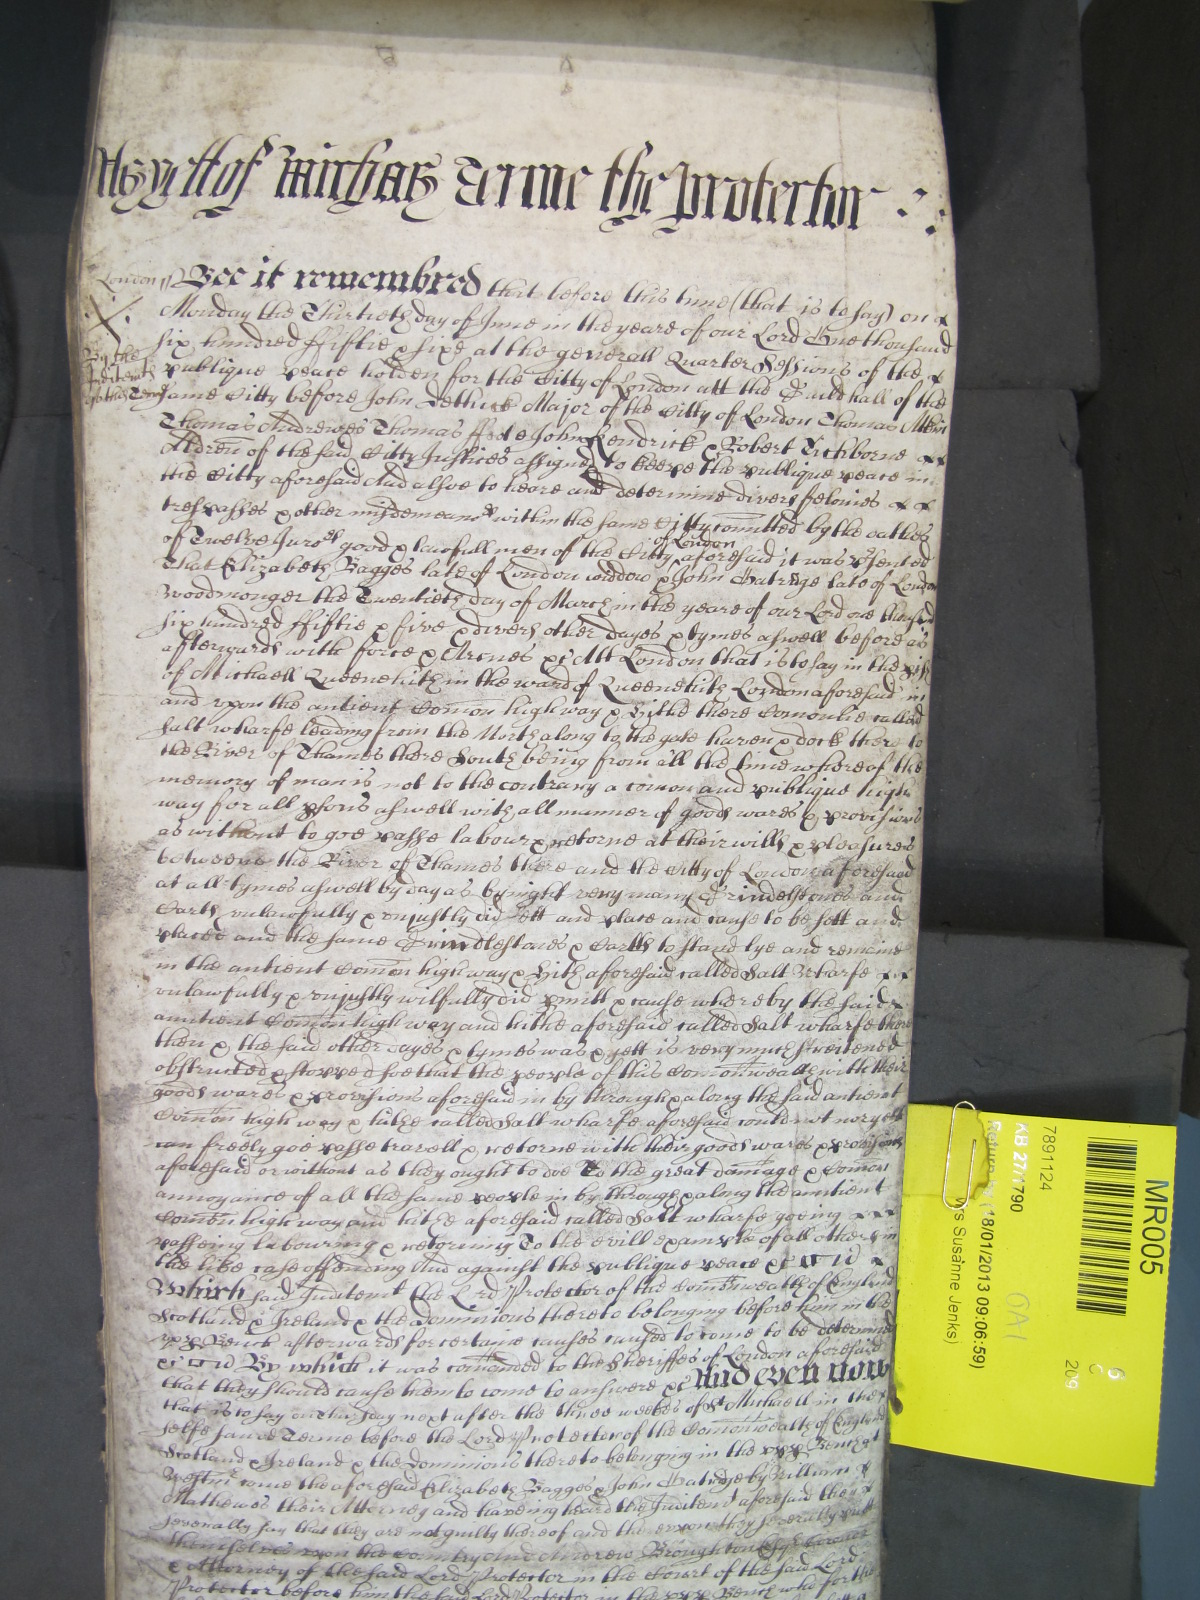 As yett of Michas Terme the Protector
London ss Bee it remembred that before this time (that is to say) on
Monday the Thirtieth day of June in the yeare of our Lord One thousand
six hundred ffiftie & sixe at the generall Quarter Sessions of the
By the
publique peace holden for the Citty of London att the Guildhall of the
Inditemts
same Citty before John Dethick Major of the Citty of London Thomas Atkin
Thomas Andrewes Thomas ffoote John Kendrick & Robert Tichborne
Aldren of the said Citty Justices assigned to keepe the publique peace in
the Citty aforesaid And alsoe to heare and determine divers felonies
trespasses & other misdemeanors within the same Citty comitted by the oathes
of Twelve Jurors good & lawfull men of the Citty of London aforesaid it was psented
That Elizabeth Bagges late of London widdow & John Gatridge late of London
Woodmonger the Twentieth day of March in the yeare of our Lord one thousand
six hundred ffiftie & five & divers other dayes & tymes aswell before as
afterwards with force & Armes &c Att London that is to say in the pish
of Michaell Queenehith in the ward of Queenehith London aforesaid in
and upon the antient Comon high way & Hithe there Comonlie called
Salt wharfe leading from the North along to the gate haven & dock there to
the River of Thames there South being from all the time whereof the
memory of man is not to the contrary a comon and publique high
way for all psons aswell with all manner of goods wares & provisions
as without to goe passe labour & retorne at their wills & pleasures
betweene the River of Thames there and the Citty of London aforesaid
at all tymes aswell by day as by night very many Grindelstones and
Earth unlawfully & unjustly did sett and place and cause to be sett and
placed and the same Grindlestones & Earth to stand lye and remaine
in the antient Comon high way & Hith aforesaid called Salt Wharfe
unlawfully & unjustly wilfully did pmitt & cause whereby the said
antient Comon high way and hithe aforesaid called Salt wharfe there
then & the said other dayes & tymes was & yett is very much streitened
obstructed & stopped soe that the people of this Comonwealth with their
goods wares & provisions aforesaid in by through & along the said antient
Comon high way & hithe called Salt wharfe aforesaid could not nor yett
can freely goe passe travell & retorne with their goods wares & provisions
aforesaid or without as they ought to doe To the great damage & Comon
annoyance of all the same people in by through & along the antient
Comon high way and hithe aforesaid called Salt wharfe goeing
passeing labouring & retorning To the evill example of all others in
the like case offending And against the publique peace &c
Which said Inditemt the Lord Protector of the Comonwealth of England
Scotland & Ireland & the Dominions thereto belonging before him in the
upp Bench afterwards for certaine causes caused to come to be determined
&c By which it was comanded to the Sheriffes of London aforesaid
that they should cause them to come to answere &c And even now
that is to say on Thursday next after the three weekes of St Michaell in the
selfe same Terme before the Lord Protector of the Comonwealth of England
Scotland & Ireland & the Dominions thereto belonging in the upp Bench att
Westmr come the aforesaid Elizabeth Bagges & John Gatridge by William
Mathewes their Attorney and haveing heard the Inditemt aforesaid they
severally say that they are not guilty thereof and thereupon they severally putt
themselves upon the Country And Andrew Broughton Esqr Coroner
& Attorney of the said Lord Protector in the Court of the said Lord
Protector before him the said Lord Protector in the upp Bench who for the
MR005
7891124
KB 27/1790
(18/01/2013 09:06:59)
Mrs Susanne Jenks)
209